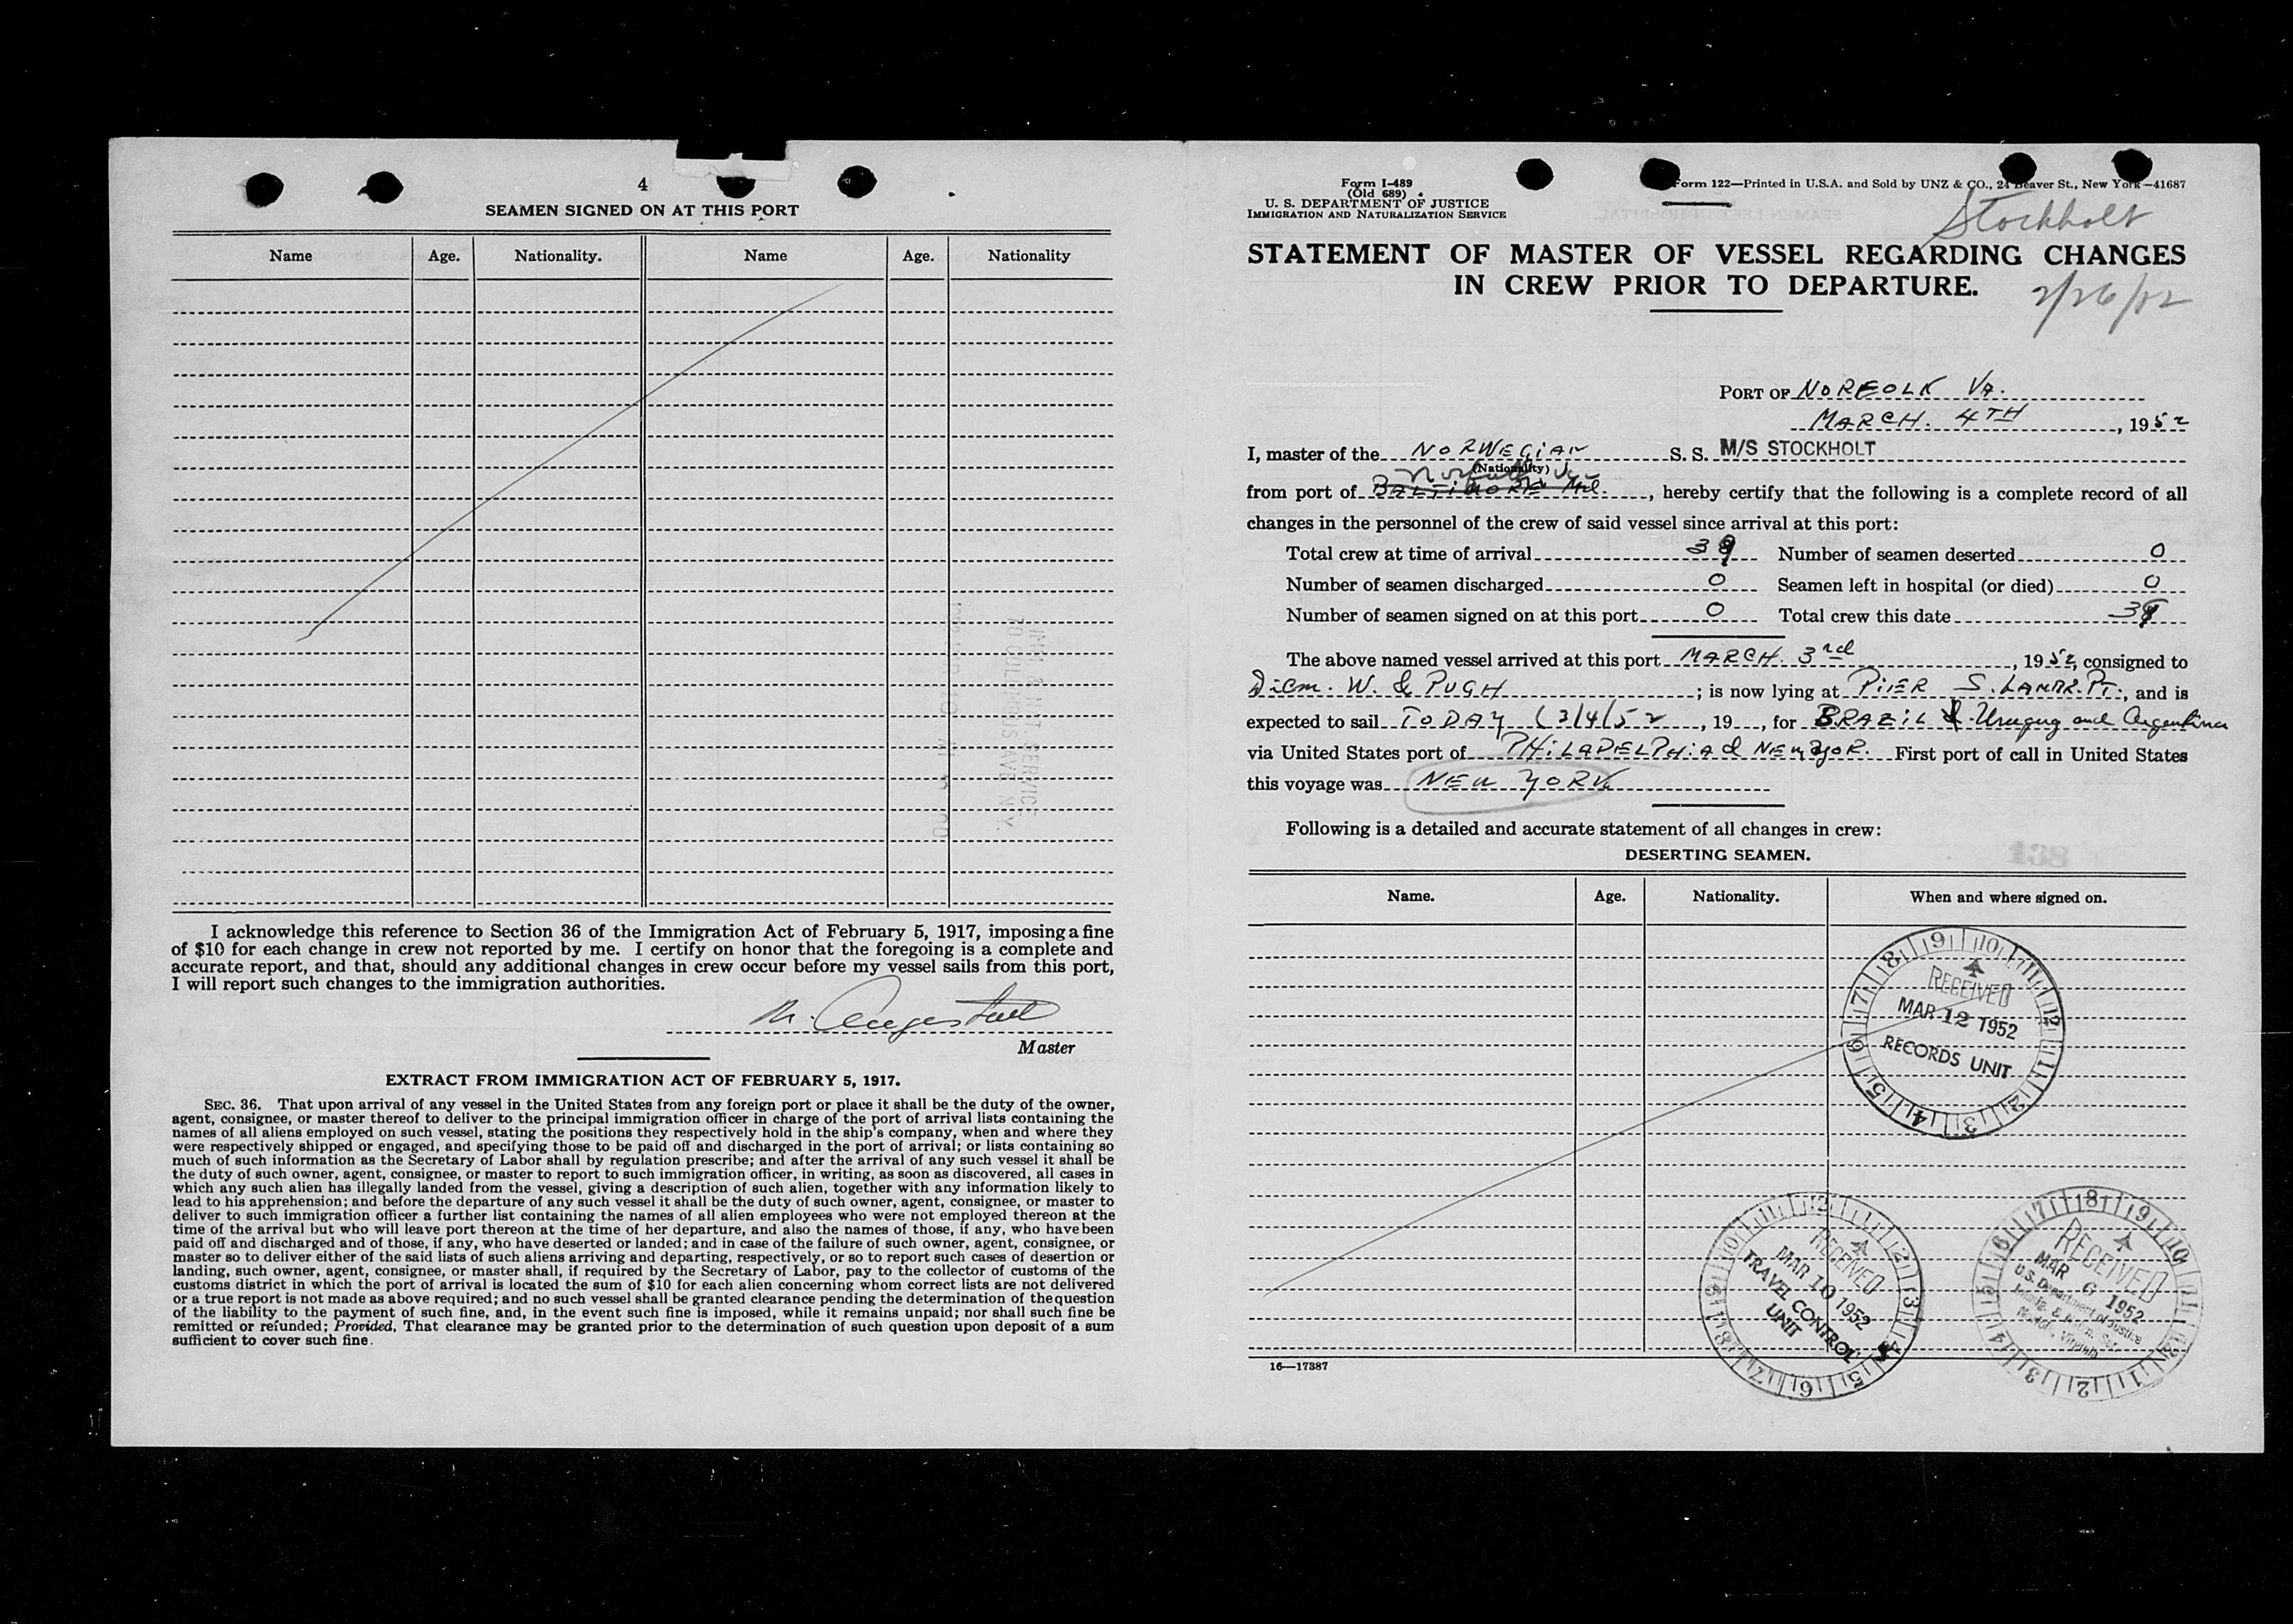 4
SEAMEN SIGNED ON AT THIS PORT
Name Age. Nationality. Name Age. Nationality
I acknowledge this reference to Section 36 of the Immigration Act of February 5, 1917, imposing a fine
of $10 for each change in crew not reported by me. I certify on honor that the foregoing is a complete and
accurate report, and that, should any additional changes in crew occur before my vessel sails from this port,
I will report such changes to the immigration authorities.
Master
EXTRACT FROM IMMIGRATION ACT OF FEBRUARY 5, 1917.
SEC. 36. That upon arrival of any vessel in the United States from any foreign port or place it shall be the duty of the owner,
agent, consignee, or master thereof to deliver to the principal immigration officer in charge of the port of arrival lists containing the
names of all aliens employed on such vessel, stating the positions they respectively hold in the ship's company, when and where they
were respectively shipped or engaged, and specifying those to be paid off and discharged in the port of arrival; or lists containing so
much of such information as the Secretary of Labor shall by regulation prescribe; and after the arrival of any such vessel it shall be
the duty of such owner, agent, consignee, or master to report to such immigration officer, in writing, as soon as discovered, all cases in
which any such alien has illegally landed from the vessel, giving a description of such alien, together with any information likely to
lead to his apprehension; and before the departure of any such vessel it shall be the duty of such owner, agent, consignee, or master to
deliver to such immigration officer a further list containing the names of all alien employees who were not employed thereon at the
time of the arrival but who will leave port thereon at the time of her departure, and also the names of those, if any, who have been
paid off and discharged and of those, if any, who have deserted or landed; and in case of the failure of such owner, agent, consignee, or
master so to deliver either of the said lists of such aliens arriving and departing, respectively, or so to report such cases of desertion or
landing, such owner, agent, consignee, or master shall, if required by the Secretary of Labor, pay to the collector of customs of the
customs district in which the port of arrival is located the sum of $10 for each alien concerning whom correct lists are not delivered
or a true report is not made as above required; and no such vessel shall be granted clearance pending the determination of the question
of the liability to the payment of such fine, and, in the event such fine is imposed, while it remains unpaid; nor shall such fine be
remitted or refunded; Provided, That clearance may be granted prior to the determination of such question upon deposit of a sum
sufficient to cover such fine.
Form I-489
(Old 689)
U. S. DEPARTMENT OF JUSTICE
IMMIGRATION AND NATURALIZATION SERVICE
Form 122—Printed in U.S.A. and Sold by UNZ & CO., 24 Beaver St., New York—41687
Stockholt
STATEMENT OF MASTER OF VESSEL REGARDING CHANGES
IN CREW PRIOR TO DEPARTURE.
2/26/52
PORT OF NORFOLK VA.
MARCH. 4TH, 1952
I, master of the NORWEGIAN S. S. M/S STOCKHOLT
(Nationality)
Norfolk Va
from port of BALTIMORE Md., hereby certify that the following is a complete record of all
changes in the personnel of the crew of said vessel since arrival at this port:
Total crew at time of arrival 39 Number of seamen deserted 0
Number of seamen discharged 0 Seamen left in hospital (or died) 0
Number of seamen signed on at this port 0 Total crew this date 39
The above named vessel arrived at this port MARCH. 3rd, 1952, consigned to
Dicm. W. & PUGH; is now lying at PIER S. LAMR. PT., and is
expected to sail TODAY (3/4/52, 19, for BRAZIL & Uruguy and Argentina
via United States port of PHILADELPHIA & NEW YOR. First port of call in United States
this voyage was NEW YORK
Following is a detailed and accurate statement of all changes in crew:
138
DESERTING SEAMEN.
Name. Age. Nationality. When and where signed on.
RECEIVED
MAR 12 1952
RECORDS UNIT
RECEIVED
MAR 10 1952
TRAVEL CONTROL
UNIT
RECEIVED
MAR 6 1952
U.S. Department of Justice
Immig. & Natn. Ser.
Norfolk, Virginia
16—17387